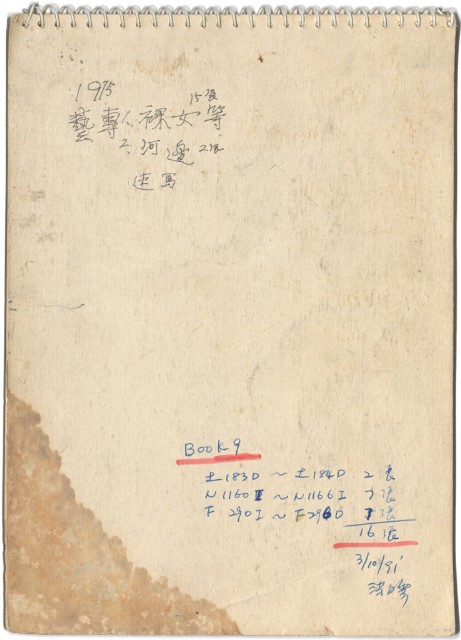 1975
15張
藝專 1、裸女等
2、河邊 2張
速写
BOOK 9
土183D ~ 土184D 2張
N1160I ~ N1166I 7張
F 290I ~ F296D 7張
16張
3/10/91'